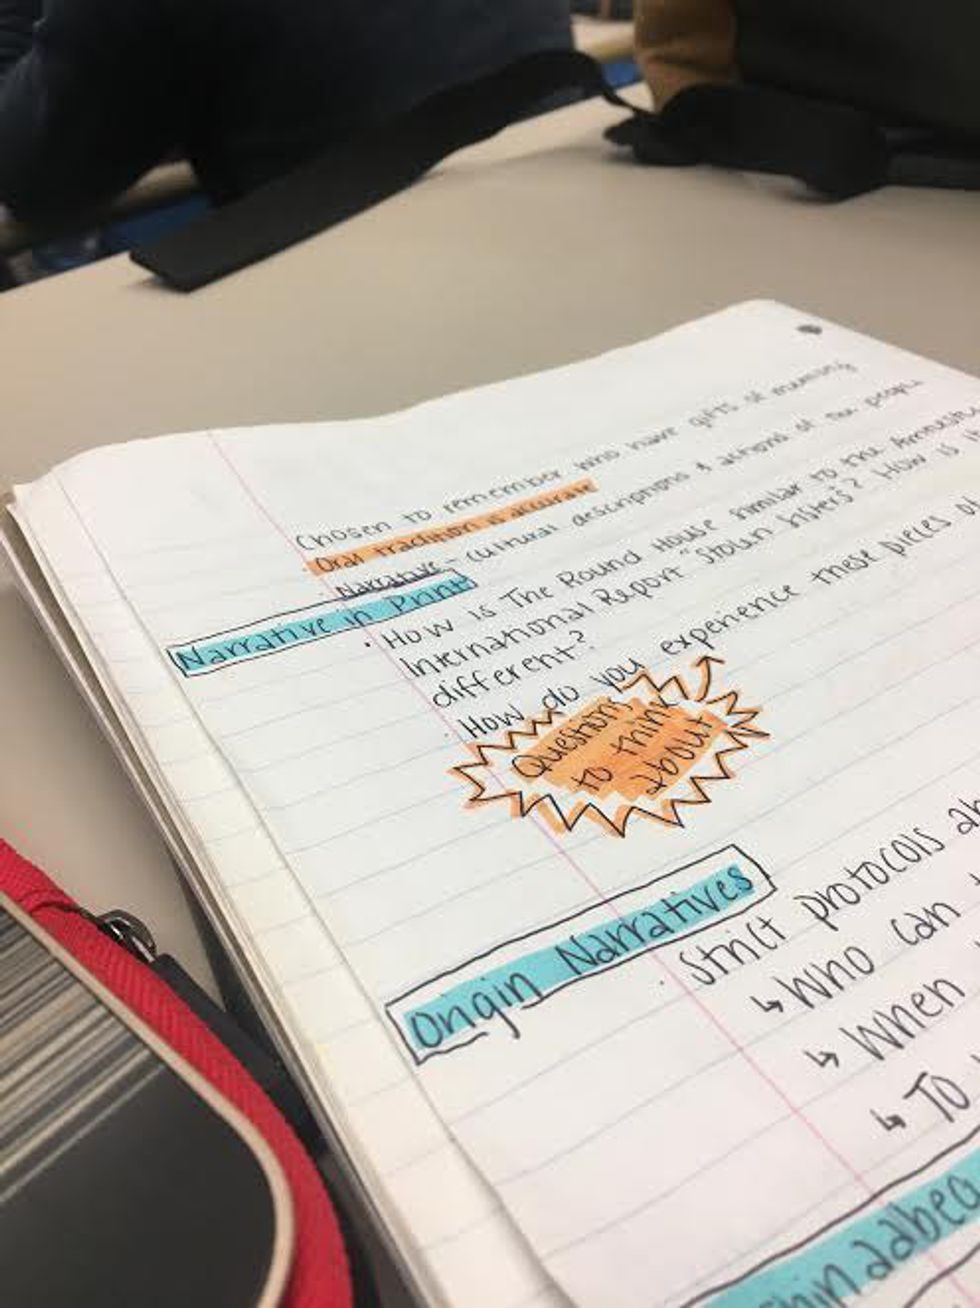 Chosen to remember who have gifts of memory
Oral tradition is accurate
Narrative - Cultural descriptions & actions of the people
Narrative in Print
· How is The Round House similar to the Amnesty
International Report "Stolen Sisters? How is it
different?
· How do you experience these pieces
Questions
to think
about
Origin Narratives
· Strict protocols
↳ Who can
↳ When
↳ To